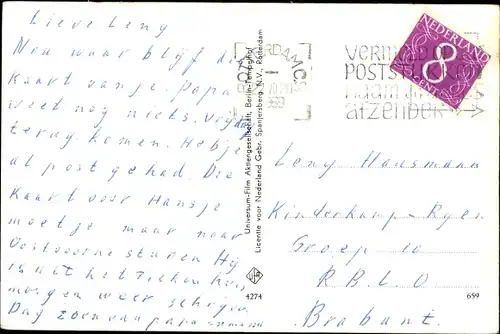 Lieve Leny
Nou waar blijf die
Kaart van je. Papa
weet nog niets. Vrydag
terug komen. Heb je
al post gehad. Die
Kaart voor Hansje
moet je maar naar
Oostvoorne sturen Hij
is uit het Ziekenhuis,
morgen weer schrijven
Dag zoen van papa en mama
Universum-Film Aktiengesellschaft, Berlin-Tempelhof
Licentie voor Nederland Gebr. Spanjersberg N.V., Rotterdam
4274
ROTTERDAM C
1959
VERMELD OP
POSTSTUKKEN
NAAM
AFZENDER
NEDERLAND
8
CENT
Leny Hausmann
Kinderkamp-Ryen
Groep 10
R.B.L.O
Brabant.
659